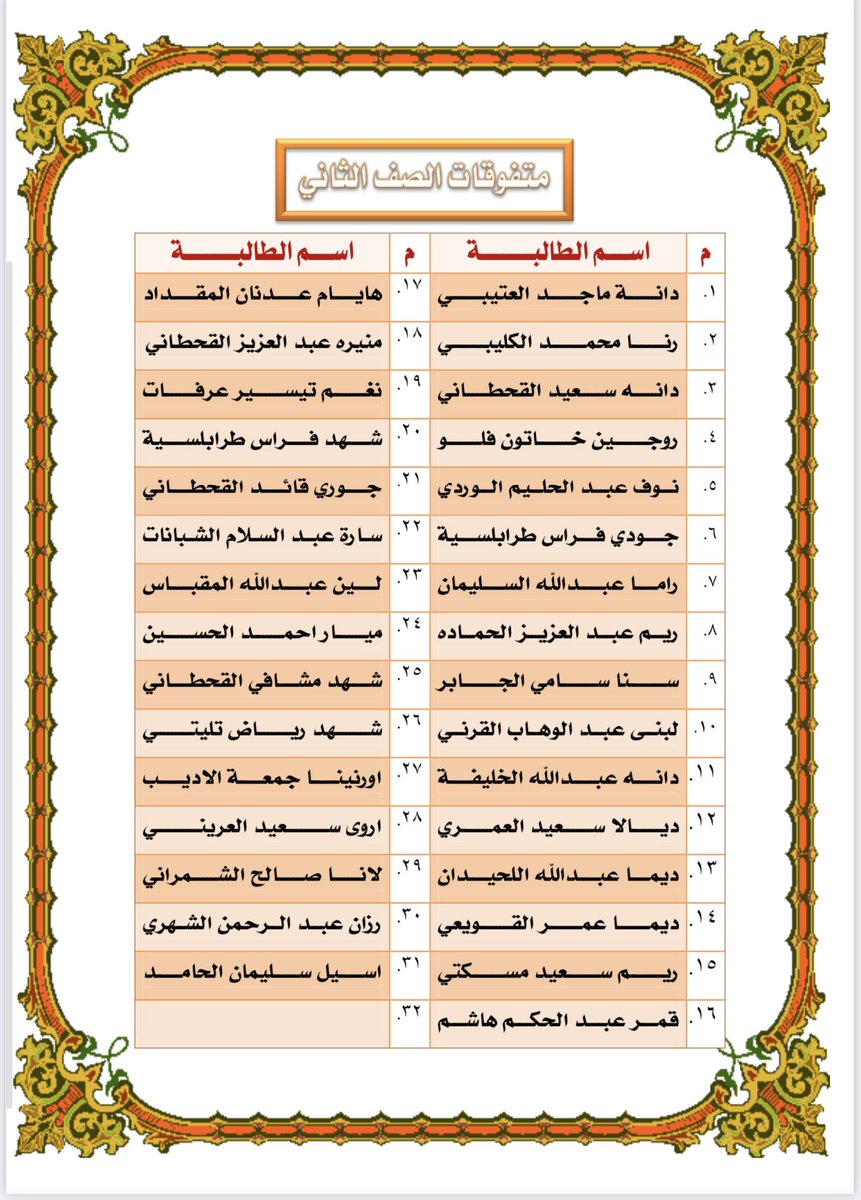 متفوقات الصف الثاني
م اسم الطالبة م اسم الطالبة
١. دانة ماجد العتيبي ١٧. هايام عدنان المقداد
٢. رنا محمد الكليبي ١٨. منيره عبد العزيز القحطاني
٣. دانه سعيد القحطاني ١٩. نغم تيسير عرفات
٤. روجين خاتون فلو ٢٠. شهد فراس طرابلسية
٥. نوف عبد الحليم الوردي ٢١. جوري قائد القحطاني
٦. جودي فراس طرابلسية ٢٢. سارة عبد السلام الشبانات
٧. راما عبدالله السليمان ٢٣. لين عبدالله المقباس
٨. ريم عبد العزيز الحماده ٢٤. ميار احمد الحسين
٩. سنا سامي الجابر ٢٥. شهد مشافي القحطاني
١٠. لبنى عبد الوهاب القرني ٢٦. شهد رياض تليتي
١١. دانه عبدالله الخليفة ٢٧. اورنينا جمعة الاديب
١٢. ديالا سعيد العمري ٢٨. اروى سعيد العريني
١٣. ديما عبدالله اللحيدان ٢٩. لانا صالح الشمراني
١٤. ديما عمر القويعي ٣٠. رزان عبد الرحمن الشهري
١٥. ريم سعيد مسكتي ٣١. اسيل سليمان الحامد
١٦. قمر عبد الحكم هاشم ٣٢.